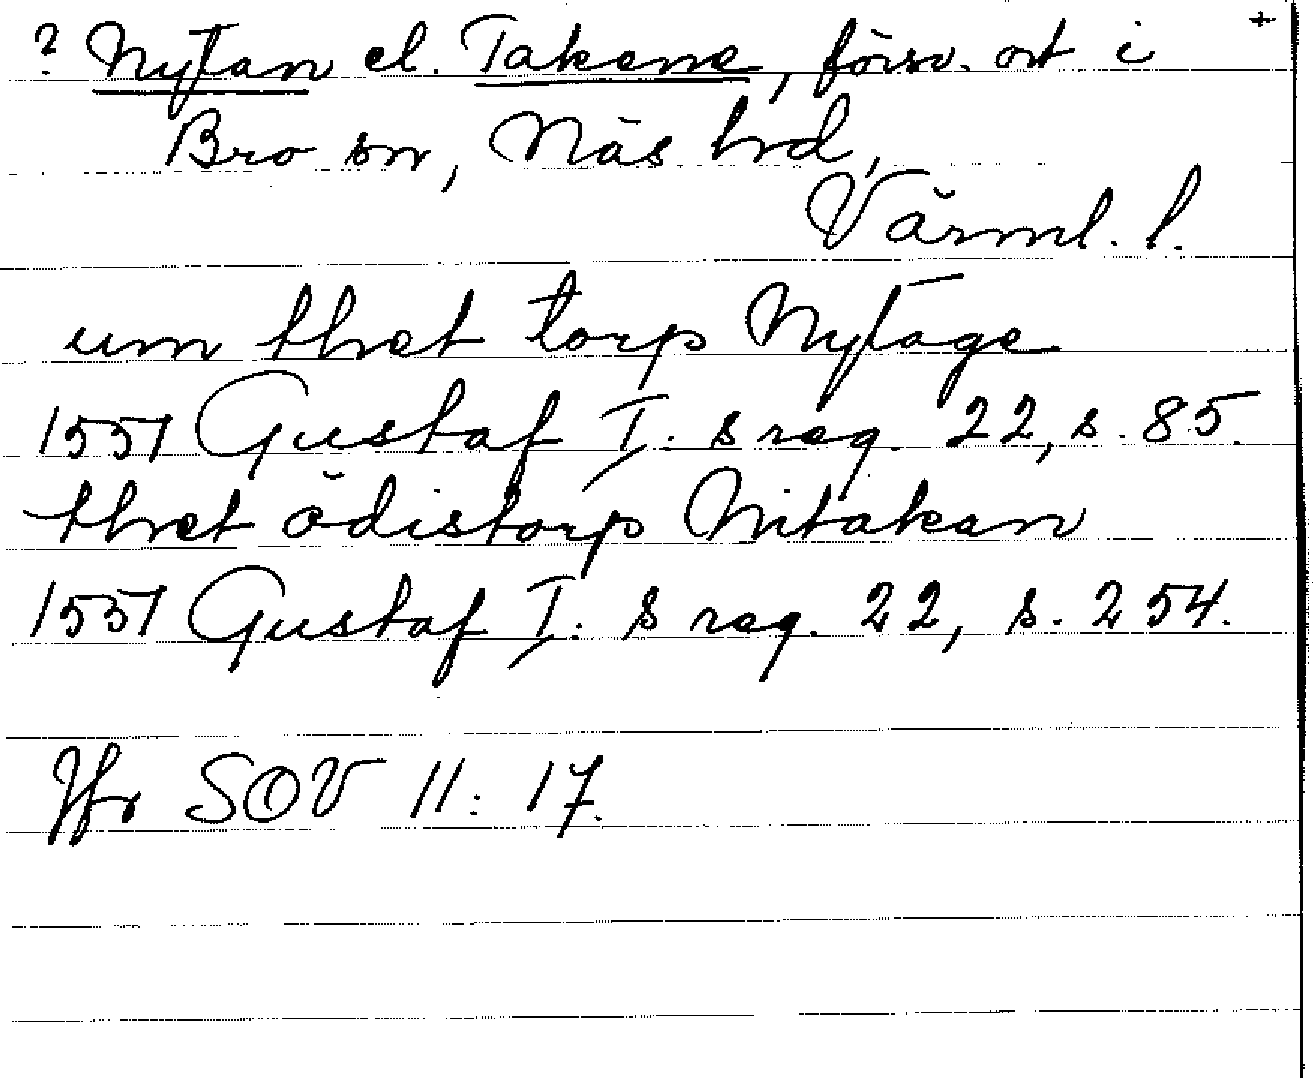 ? Nytan el. Takene, försv. ort i +
Bro sn, Näs hrd,
Värml. l.
um thet torp Nytage
1551 Gustaf I:s reg. 22, s. 85.
thet ödistorp Nitakan
1551 Gustaf I:s reg. 22, s. 254.
Jfr SOV 11: 17.